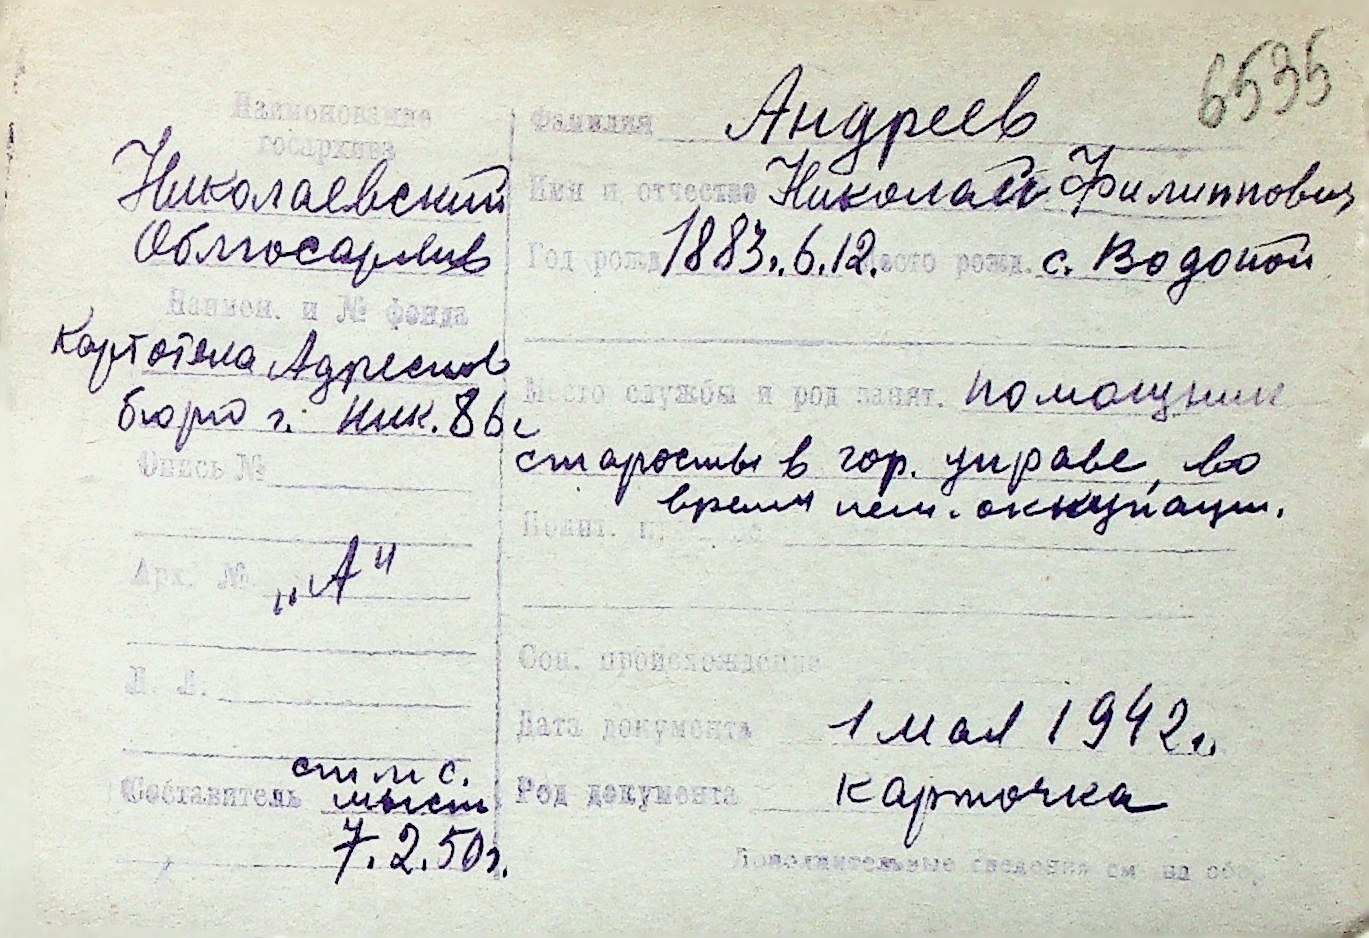 6535
Наименование
госархива
Николаевский
Облгосархив
Наимен. и № фонда
Картотека Адресного
бюро г. Ник.
Опись №
Арх. № „А“
Л. д.
Составитель
7.2.50г.
Фамилия Андреев
Имя и отчество Николай Филиппович
Год рожд. 1883.6.12. Место рожд. с. Водопой
Место службы и род занят. помощник
старосты в гор. управе, во
время нем. оккупации.
Соц. происхождение
Дата документа 1 мая 1942г.
Род документа карточка
Дополнительные сведения см на обо.